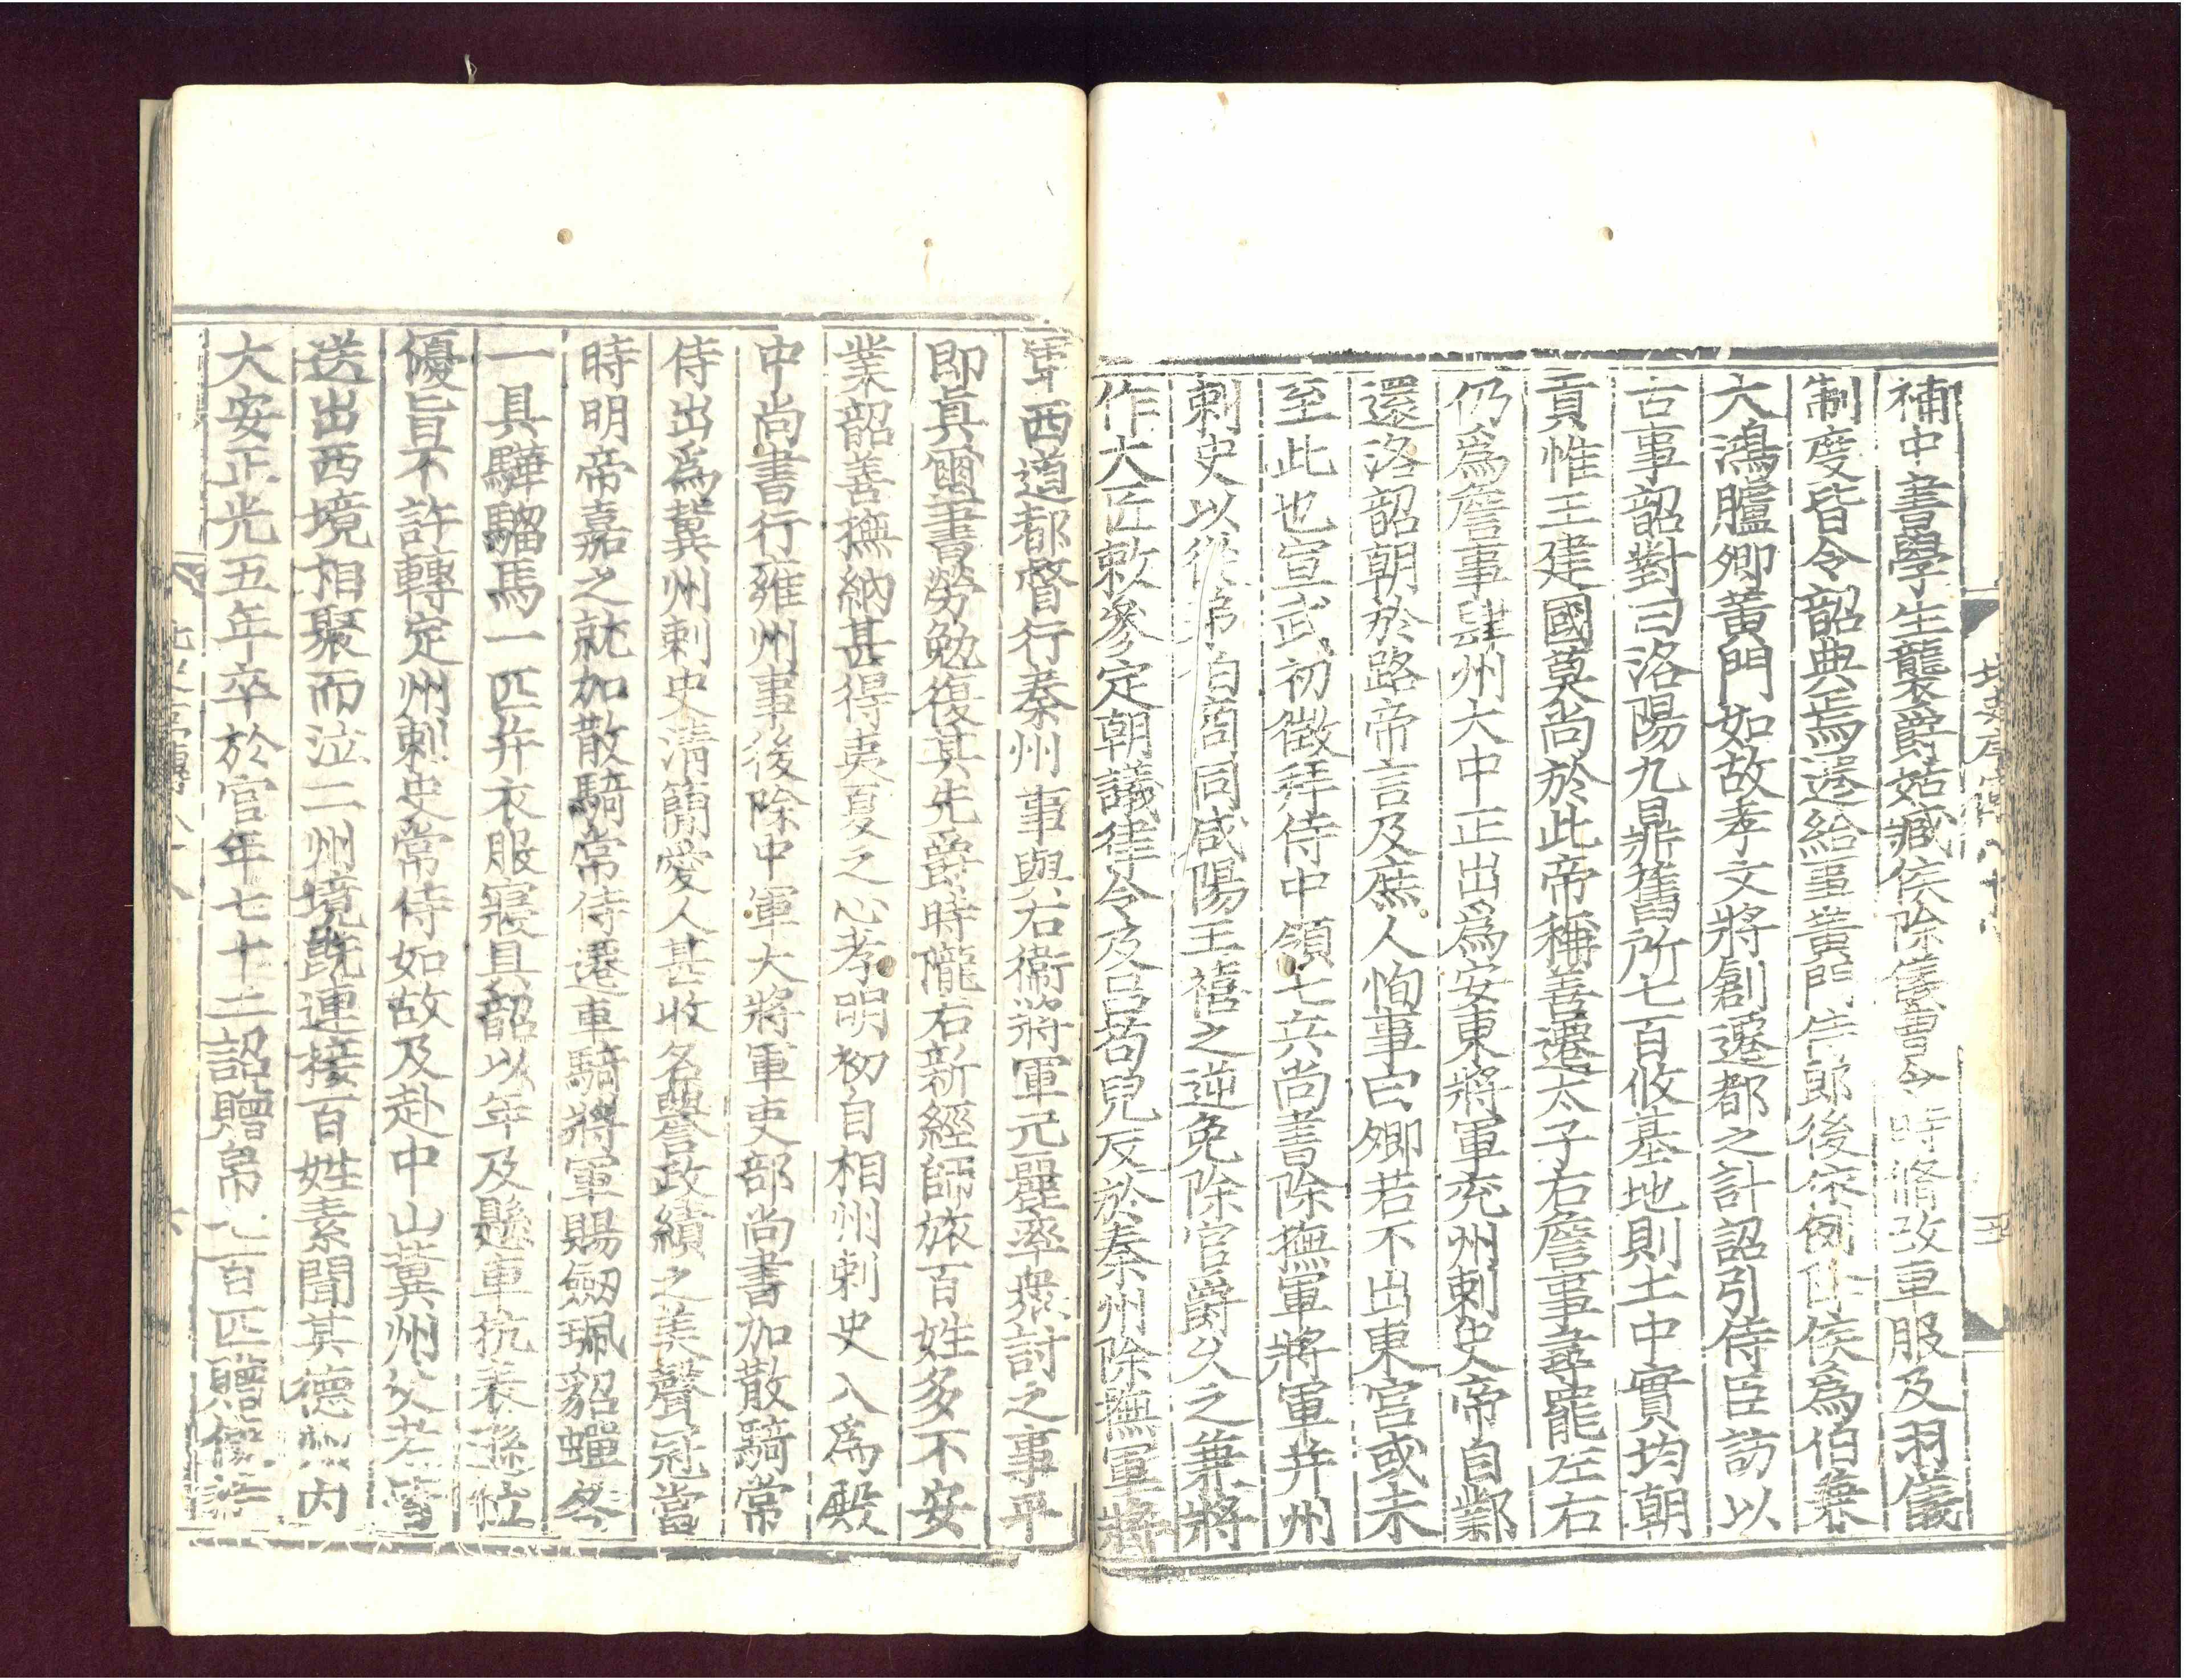 補中書學生襲爵姑臧侯除儀曹令時脩改車服及羽儀
制度皆令韶典焉遷給事黃門侍郎後依例降侯爲伯兼
大鴻臚卿黃門如故孝文將創遷都之計詔引侍臣訪以
古事韶對曰洛陽九鼎舊所七百攸基地則土中實均朝
貢惟王建國莫尚於此帝稱善遷太子右詹事尋罷左右
仍爲詹事肆州大中正出爲安東將軍兖州刺史帝自鄴
還洛韶朝於路帝言及庶人恂事曰卿若不出東宮或未
至此也宣武初徵拜侍中領七兵尚書除撫軍將軍并州
刺史以從弟伯尚同咸陽王禧之逆免除官爵久之兼將
作大匠敕參定朝議律令及呂苟兒反於秦州除撫軍將
軍西道都督行秦州事與右衛將軍元麗率衆討之事平
即真璽書勞勉復其先爵時隴右新經師旅百姓多不安
業韶善撫納甚得夷夏之心孝明初自相州刺史入爲殿
中尚書行雍州事後除中軍大將軍吏部尚書加散騎常
侍出爲冀州刺史清簡愛人甚收名譽政績之美聲冠當
時明帝嘉之就加散騎常侍遷車騎將軍賜劔珮貂蟬各
一具驊騮馬一匹并衣服寢具韶以年及懸車抗表遜位
優旨不許轉定州刺史常侍如故及赴中山冀州父老皆
送出西境相聚而泣二州境旣連接百姓素聞其德州內
大安正光五年卒於官年七十二詔贈帛七百匹贈